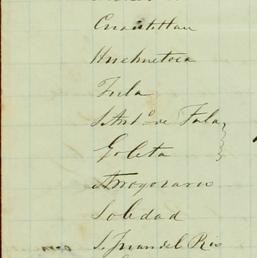 Cuautitlan
Huehuetoca
Tula
S. Ant. de Tula
Goleta
Arroyozarco
Soledad
S. Juan del Rio